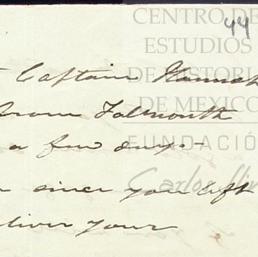 44
CENTRO DE
ESTUDIOS
DE HISTORI
DE MEXICO
FUNDACIÓN
Carlos Sli
Captain Hannah
from Falmouth
a few days -
since you left
deliver your